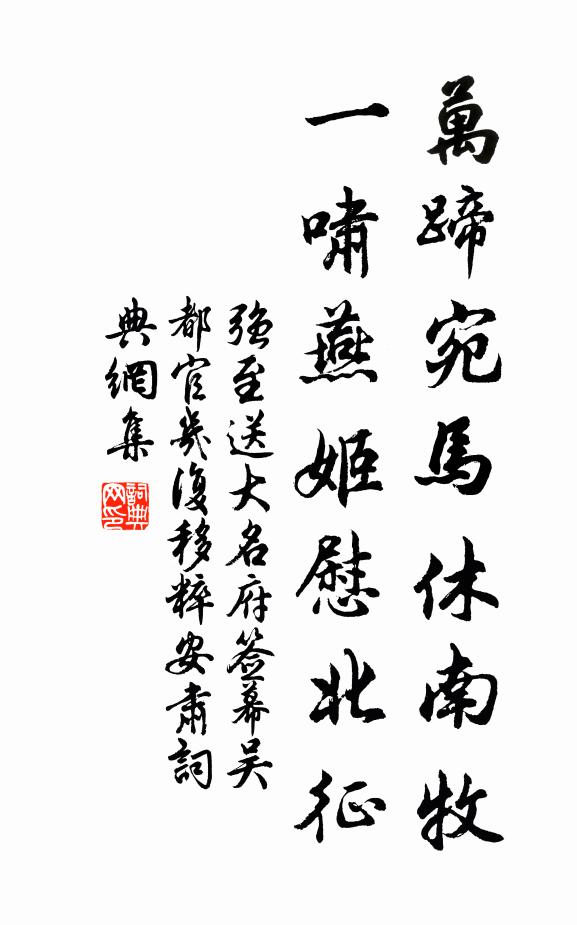 萬蹄宛馬休南牧
一嘯燕姬慰北征
强至送大名府签幕吴
都官幾復移粹安肅詞
典網集
詞典
网印